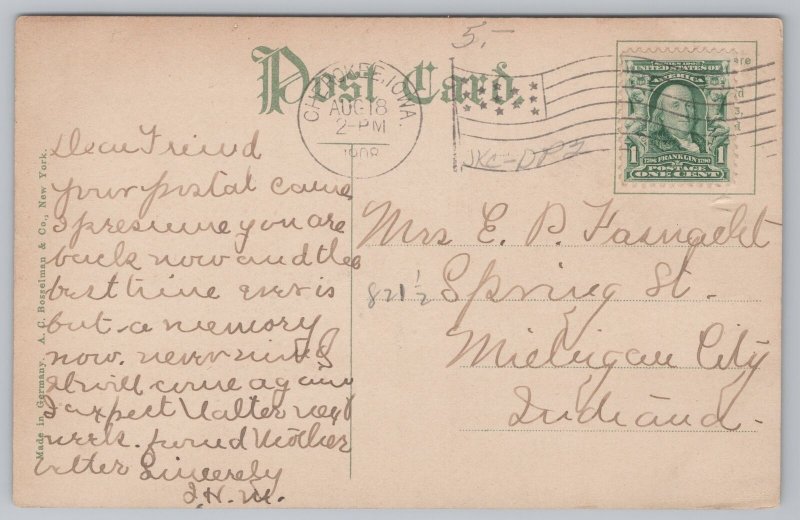 Post Card.
5.-
CHEROKEE, IOWA.
AUG 18
2-PM
1908
SERIES 1902
UNITED STATES OF
AMERICA
1 1
1706 FRANKLIN 1790
POSTAGE
ONE CENT
Dear Friend
your postal came
I presume you are
back now and the
best time ever is
but a memory
now. never mind
it will come again
I expect Walter next
week. found Mother
better Sincerely
J. H. M.
Mrs E. P. Fasnacht
821½ Spring St.
Michigan City
Indiana.
Made in Germany. A. C. Bosselman & Co., New York.